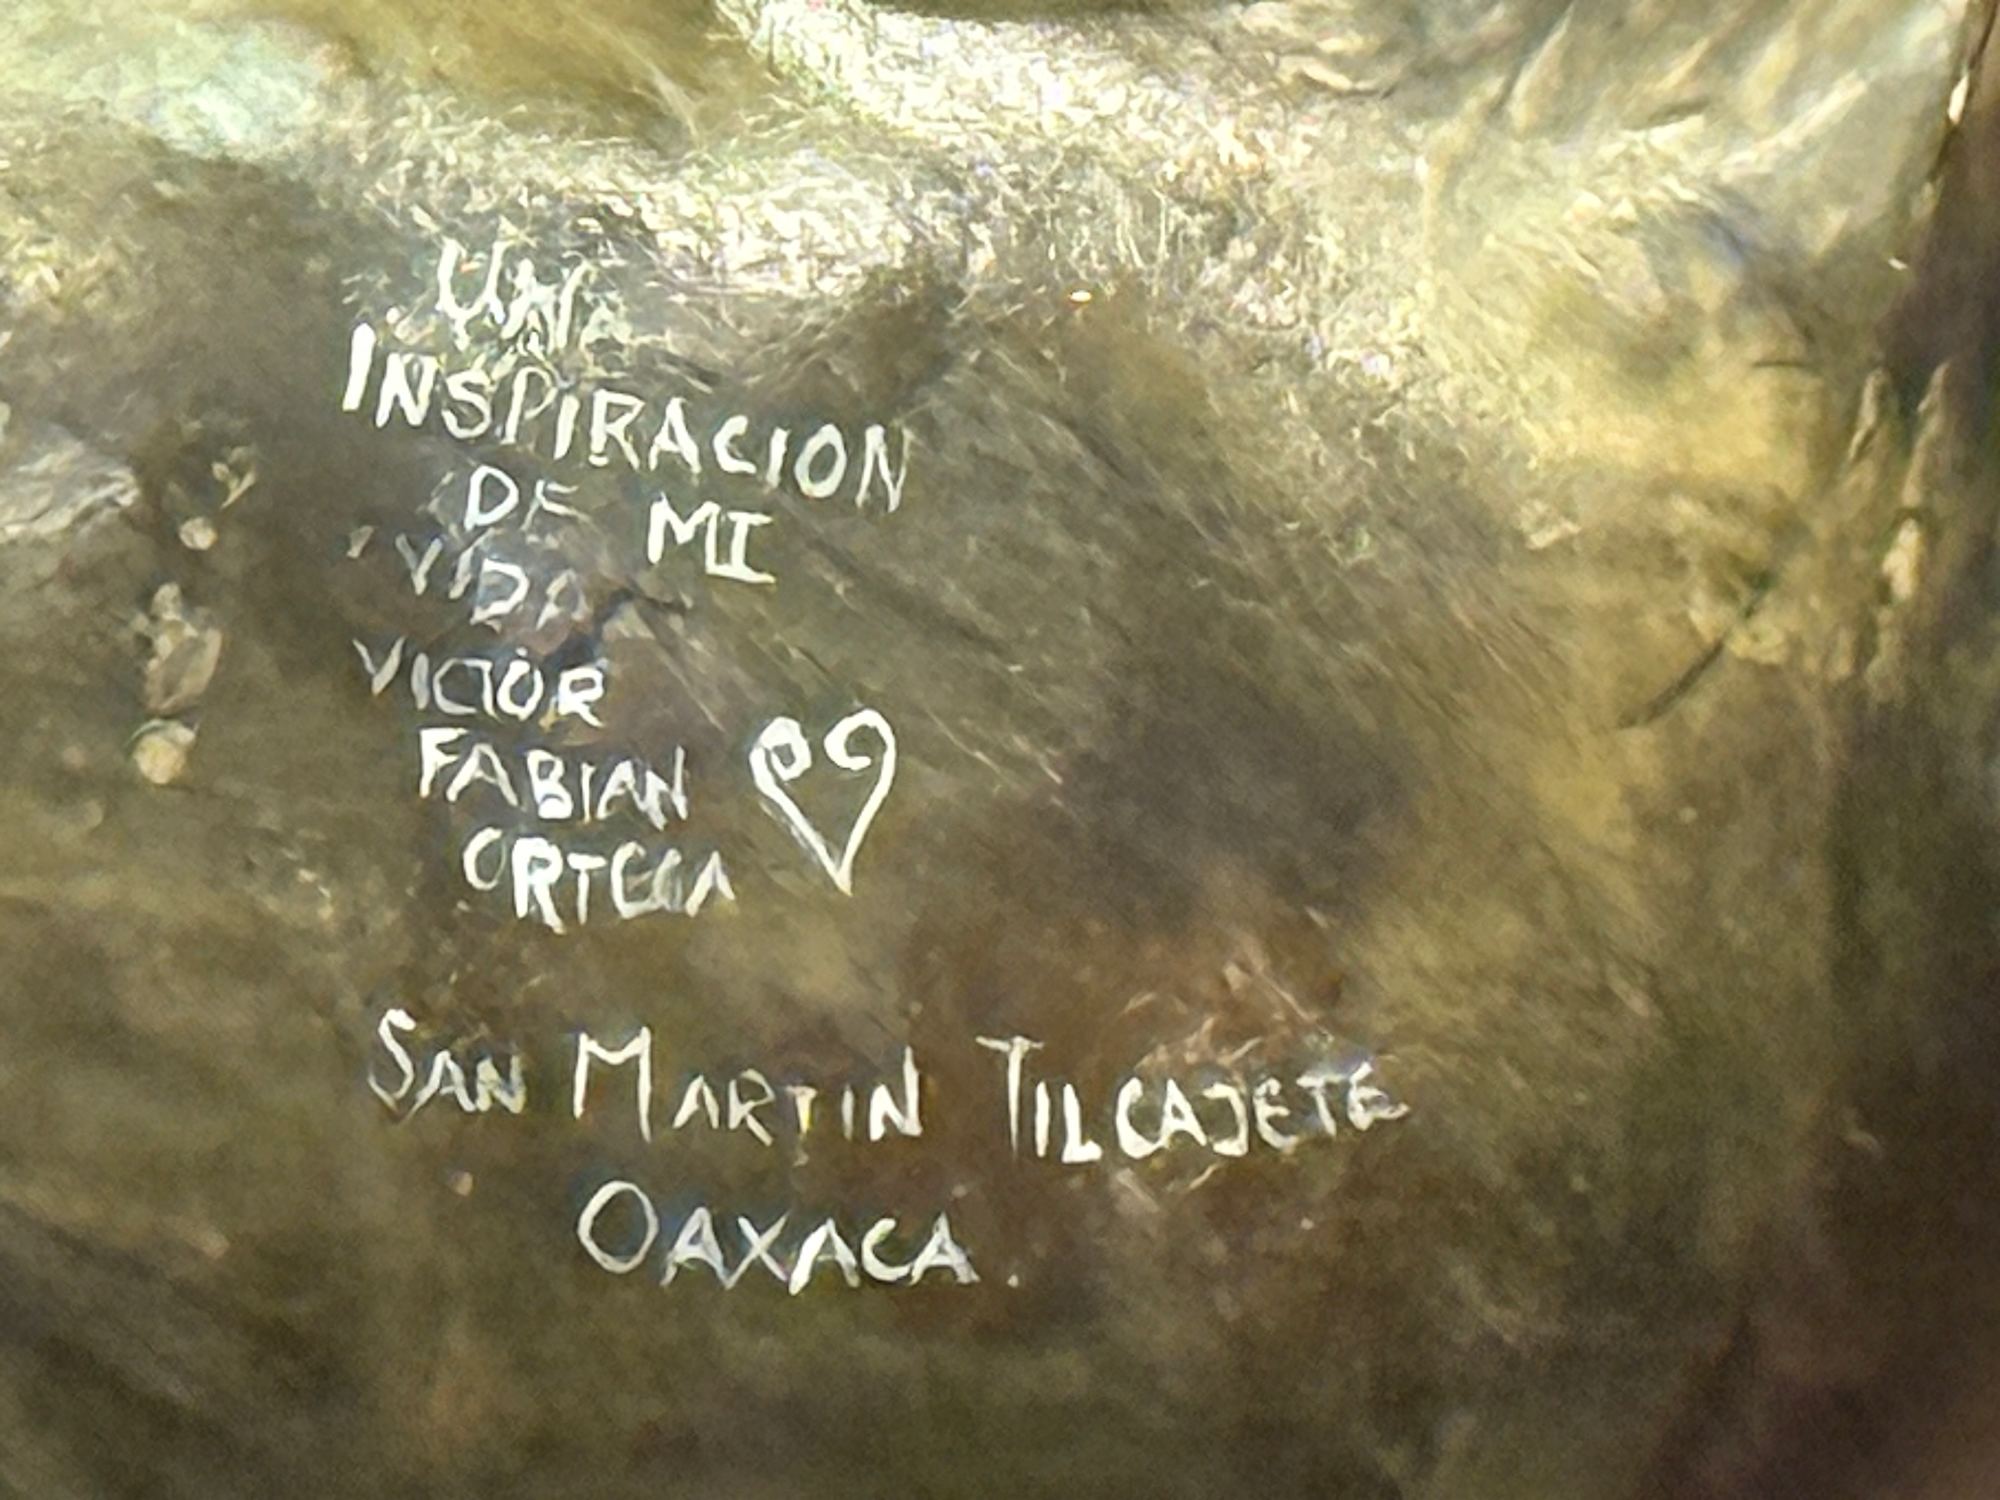 UNA
INSPIRACION
DE MI
VIDA
VICTOR
FABIAN
ORTEGA
SAN MARTIN TILCAJETE
OAXACA.